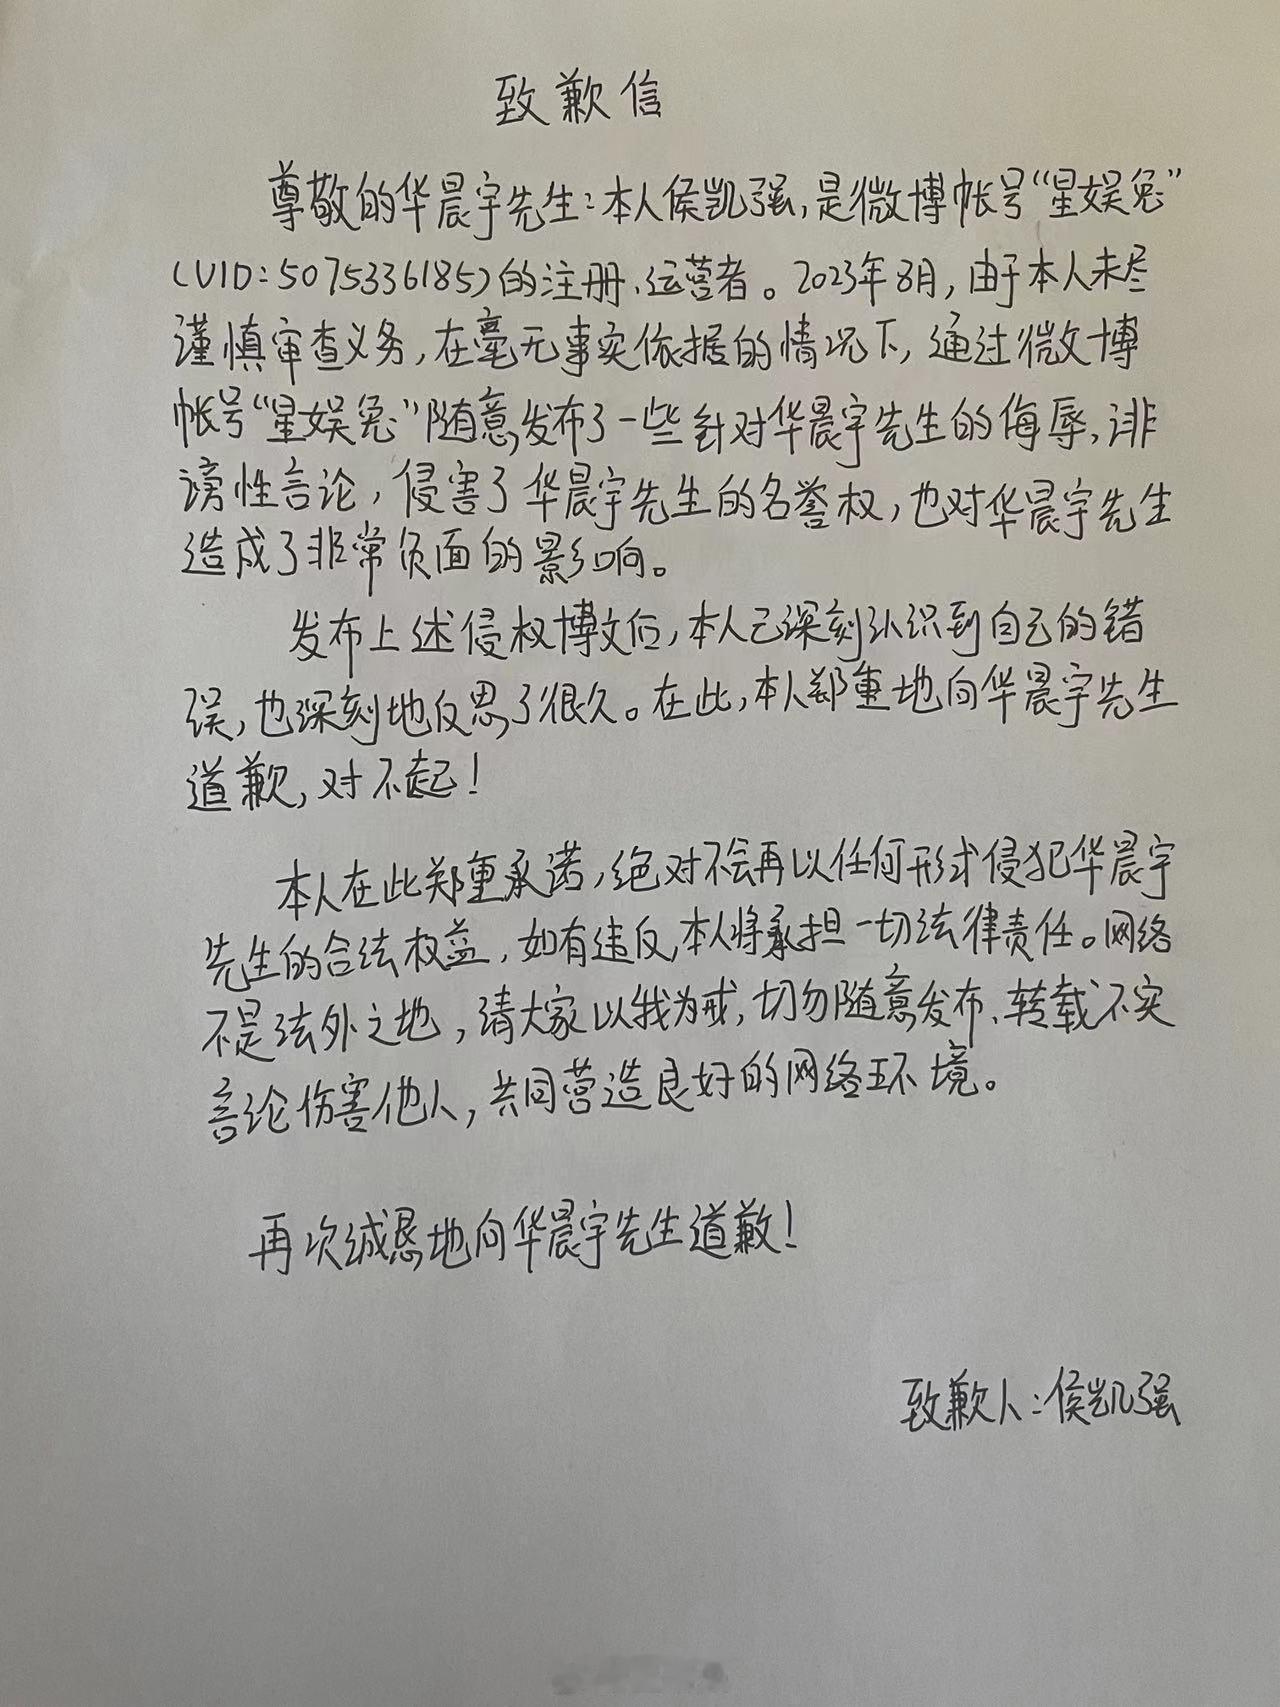 致歉信
尊敬的华晨宇先生：本人侯凯强，是微博帐号“星娱兔”
（UID：5075336185）的注册、运营者。2023年8月，由于本人未尽
谨慎审查义务，在毫无事实依据的情况下，通过微博
帐号“星娱兔”随意发布了一些针对华晨宇先生的侮辱、诽
谤性言论，侵害了华晨宇先生的名誉权，也对华晨宇先生
造成了非常负面的影响。
发布上述侵权博文后，本人已深刻认识到自己的错
误，也深刻地反思了很久。在此，本人郑重地向华晨宇先生
道歉，对不起！
本人在此郑重承诺，绝对不会再以任何形式侵犯华晨宇
先生的合法权益，如有违反，本人将承担一切法律责任。网络
不是法外之地，请大家以我为戒，切勿随意发布、转载不实
言论伤害他人，共同营造良好的网络环境。
再次诚恳地向华晨宇先生道歉！
致歉人：侯凯强